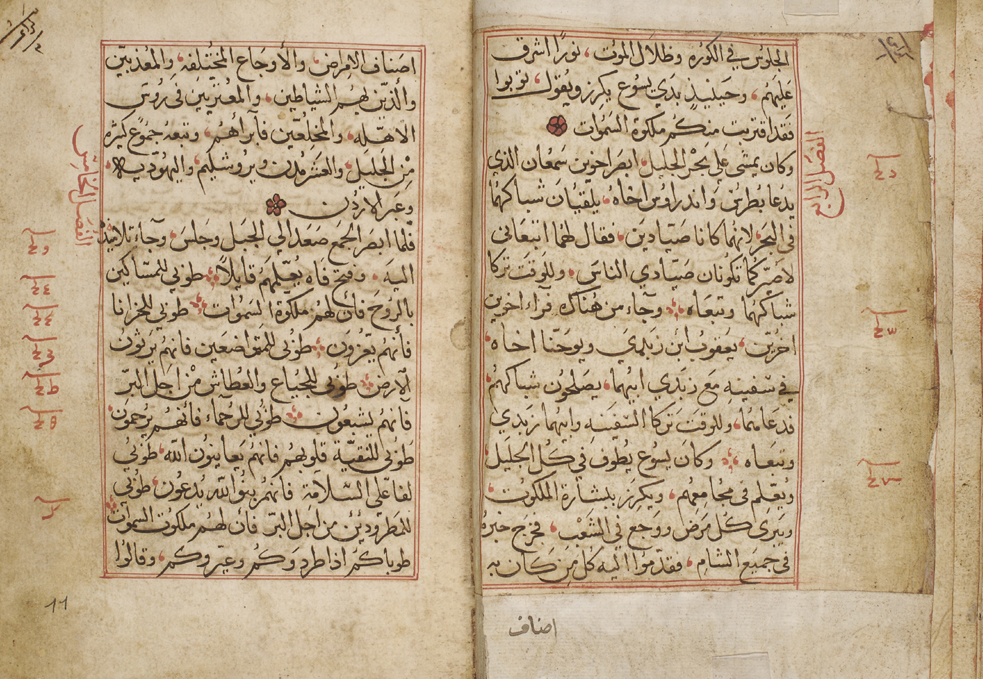 الجلوس في الكورة وظلال الموت، نورًا اشرق
عليهم، وحينيذٍ بدي يسوع يكرز ويقول، توبوا
فقد اقتربت منكم ملكوة السموات
الفصل الرابع
وكان يمشى على بحر الجليل، ابصر اخوين سمعان الذي
يدعا بطرس، واندراوس اخاه، يلقيان شباكهما
في البحر، لانهما كانا صيادين، فقال لهما اتبعاني
لاصيركما تكونان صيادي الناس، وللوقت تركا
شباكهما وتبعاه وجاء من هناك فراء اخوين
اخرين، يعقوب ابن زبدي ويوحنا اخاه،
في سفينه مع زبدي ابيهما، يصلحون شباكهم،
فدعاهما، وللوقت تركا السفينه وابيهما زبدي
وتبعاه وكان يسوع يطوف في كل الجليل
ويعلم في مجامعهم، ويكرز ببشارة الملكوت،
ويبرى كل مرض ووجع في الشعب، فخرج خبره
في جميع الشام، فقدموا اليه كل من كان به
اصناف
اصناف الامراض، والاوجاع المختلفه، والمعذبين
والذين بهم الشياطين، والمعتريين في روس
الاهله، والمخلعين فابراهم، وتبعه جموع كثيره
من الجليل، والعشر مدن ويروشليم، واليهوديه،
وعبر الاردن
الفصل الخامس
فلما ابصر الجمع صعد الى الجبل وجلس، وجاء تلاميذه
اليه، وفتح فاه يعلمهم قايلا طوبى للمساكين
بالروح فان لهم ملكوة السموات طوبى للحزانا
فانهم يعزون طوبى للمتواضعين فانهم يرثون
الارض طوبى للجياع والعطاش من اجل البر
فانهم يشبعون طوبى للرحماء فانهم يرحمون
طوبى للنقية قلوبهم فانهم يعاينون الله، طوبى
لفاعلي السلامة فانهم بنوا الله يدعون، طوبى
للمطرودين من اجل البر، فان لهم ملكوت السموات
طوباكم اذا طردوكم وعيروكم، وقالوا